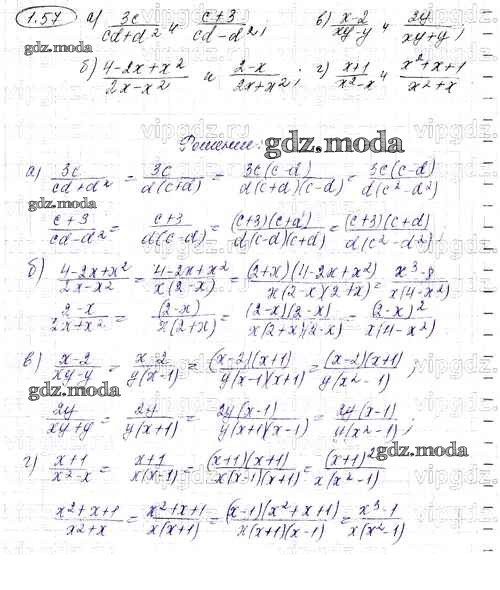 1.57 а) 3c/(cd+d²) и (c+3)/(cd-d²); в) (x-2)/(xy-y) и 2y/(xy+y);
б) (4-2x+x²)/(2x-x²) и (2-x)/(2x+x²); г) (x+1)/(x²-x) и (x²+x+1)/(x²+x).
Решение:
gdz.moda
а) 3c/(cd+d²) = 3c/(d(c+d)) = 3c(c-d)/(d(c+d)(c-d)) = 3c(c-d)/(d(c²-d²))
gdz.moda
(c+3)/(cd-d²) = (c+3)/(d(c-d)) = (c+3)(c+d)/(d(c-d)(c+d)) = (c+3)(c+d)/(d(c²-d²));
б) (4-2x+x²)/(2x-x²) = (4-2x+x²)/(x(2-x)) = (2+x)(4-2x+x²)/(x(2-x)(2+x)) = (x³-8)/(x(4-x²))
(2-x)/(2x+x²) = (2-x)/(x(2+x)) = (2-x)(2-x)/(x(2+x)(2-x)) = (2-x)²/(x(4-x²))
в) (x-2)/(xy-y) = (x-2)/(y(x-1)) = (x-2)(x+1)/(y(x-1)(x+1)) = (x-2)(x+1)/(y(x²-1));
gdz.moda
2y/(xy+y) = 2y/(y(x+1)) = 2y(x-1)/(y(x+1)(x-1)) = 2y(x-1)/(y(x²-1));
gdz.moda
г) (x+1)/(x²-x) = (x+1)/(x(x-1)) = (x+1)(x+1)/(x(x-1)(x+1)) = (x+1)²/(x(x²-1))
(x²+x+1)/(x²+x) = (x²+x+1)/(x(x+1)) = (x-1)(x²+x+1)/(x(x+1)(x-1)) = (x³-1)/(x(x²-1))